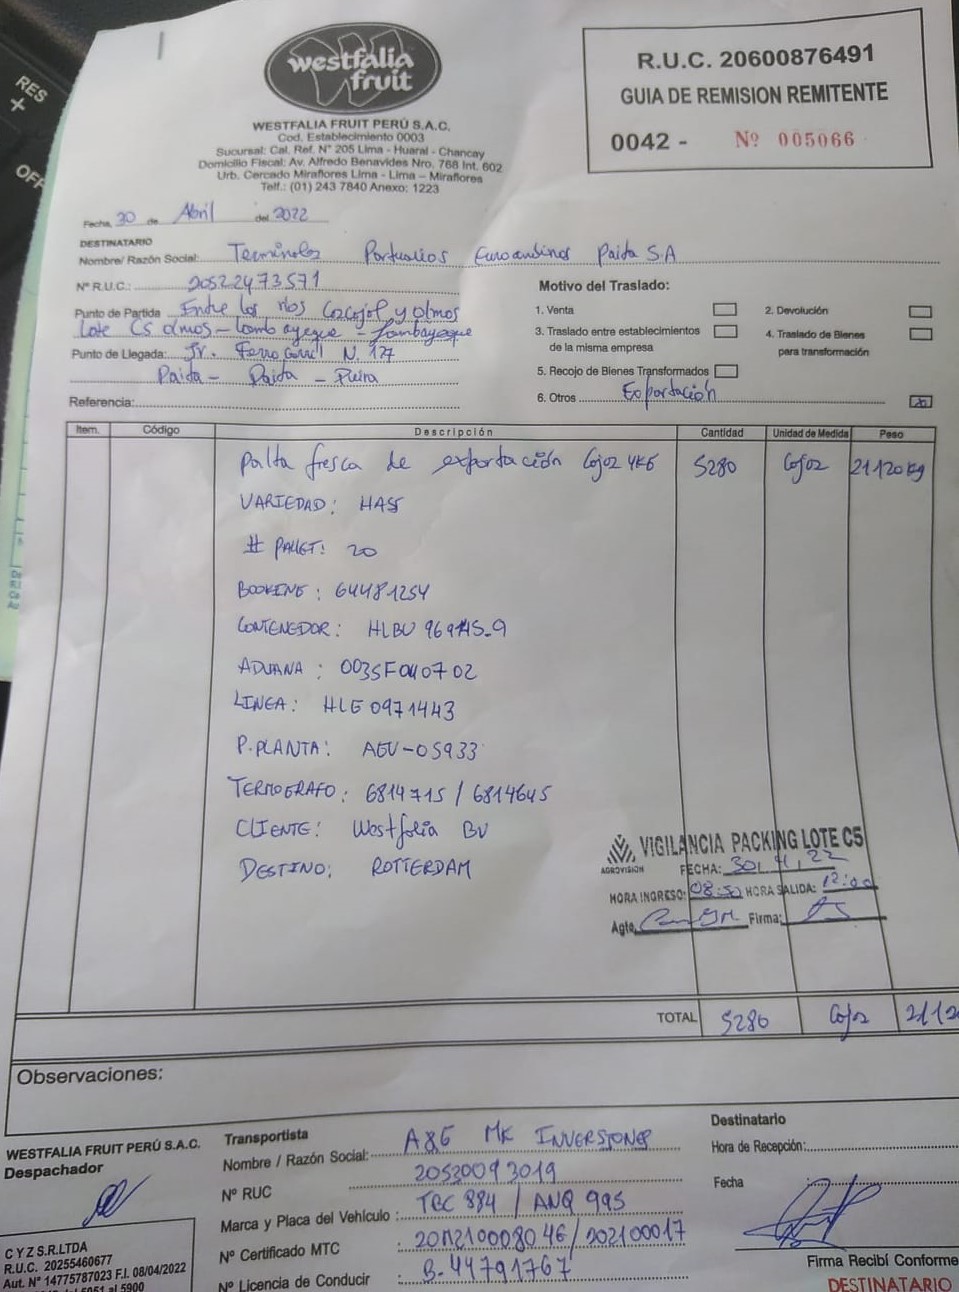 RES
+
OFF
westfalia
fruit
WESTFALIA FRUIT PERÚ S.A.C.
Cod. Establecimiento 0003
Sucursal: Cal. Ref. N° 205 Lima - Huaral - Chancay
Domicilio Fiscal: Av. Alfredo Benavides Nro. 768 Int. 602
Urb. Cercado Miraflores Lima - Lima - Miraflores
Telf.: (01) 243 7840 Anexo: 1223
R.U.C. 20600876491
GUIA DE REMISION REMITENTE
0042 - Nº 005066
Fecha, 30 de Abril del 2022
DESTINATARIO
Nombre/ Razón Social: Terminales Portuarios Euroandinos Paita S.A
N° R.U.C.: 20522473571
Punto de Partida Entre los rios Cascajal y olmos
Lote C5 olmos - Lambayeque - Lambayeque
Punto de Llegada: Jr. Ferrocarril N. 127
Paita - Paita - Piura
Referencia:
Motivo del Traslado:
1. Venta
2. Devolución
3. Traslado entre establecimientos
de la misma empresa
4. Traslado de Bienes
para transformación
5. Recojo de Bienes Transformados
6. Otros Exportación
Item. Código Descripción Cantidad Unidad de Medida Peso
Palta fresca de exportación Cajas 4KG 5280 Cajas 21120 kg
VARIEDAD: HASS
# PALLET: 20
BOOKING: 64481254
CONTENEDOR: HLBU
ADUANA:
LINEA: HLE0971443
P.PLANTA: AGV-05933
TERMOGRAFO: 6814715 / 6814645
CLIENTE: Westfalia BV
DESTINO: ROTTERDAM
VIGILANCIA PACKING LOTE C5
AGROVISION
FECHA: 30/4/22
HORA INGRESO: 08:50 HORA SALIDA: 12:00
Agte. Firma:
TOTAL 5280 Cajas 2112
Observaciones:
WESTFALIA FRUIT PERÚ S.A.C.
Despachador
C Y Z S.R.LTDA
R.U.C. 20255460677
Aut. N° 14775787023 F.I. 08/04/2022
al 5900
Transportista
Nombre / Razón Social: A&G MK INVERSIONES
Nº RUC 20530093019
Marca y Placa del Vehículo: TBC 884 / ANQ 995
Nº Certificado MTC :
Nº Licencia de Conducir : B-44791767
Destinatario
Hora de Recepción:
Fecha
Firma Recibí Conforme
DESTINATARIO